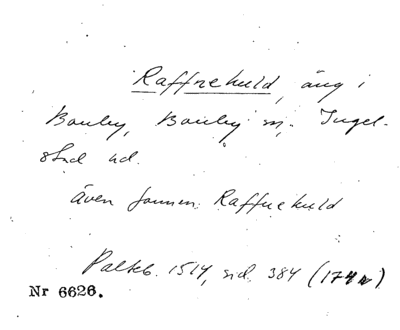 Raffnekuld, äng i
Bonby, Bonby sn, Ingel-
stad hd.
även formen: Raffnekuld
Palteb. 1514, sid. 384 (174 v)
Nr 6626.